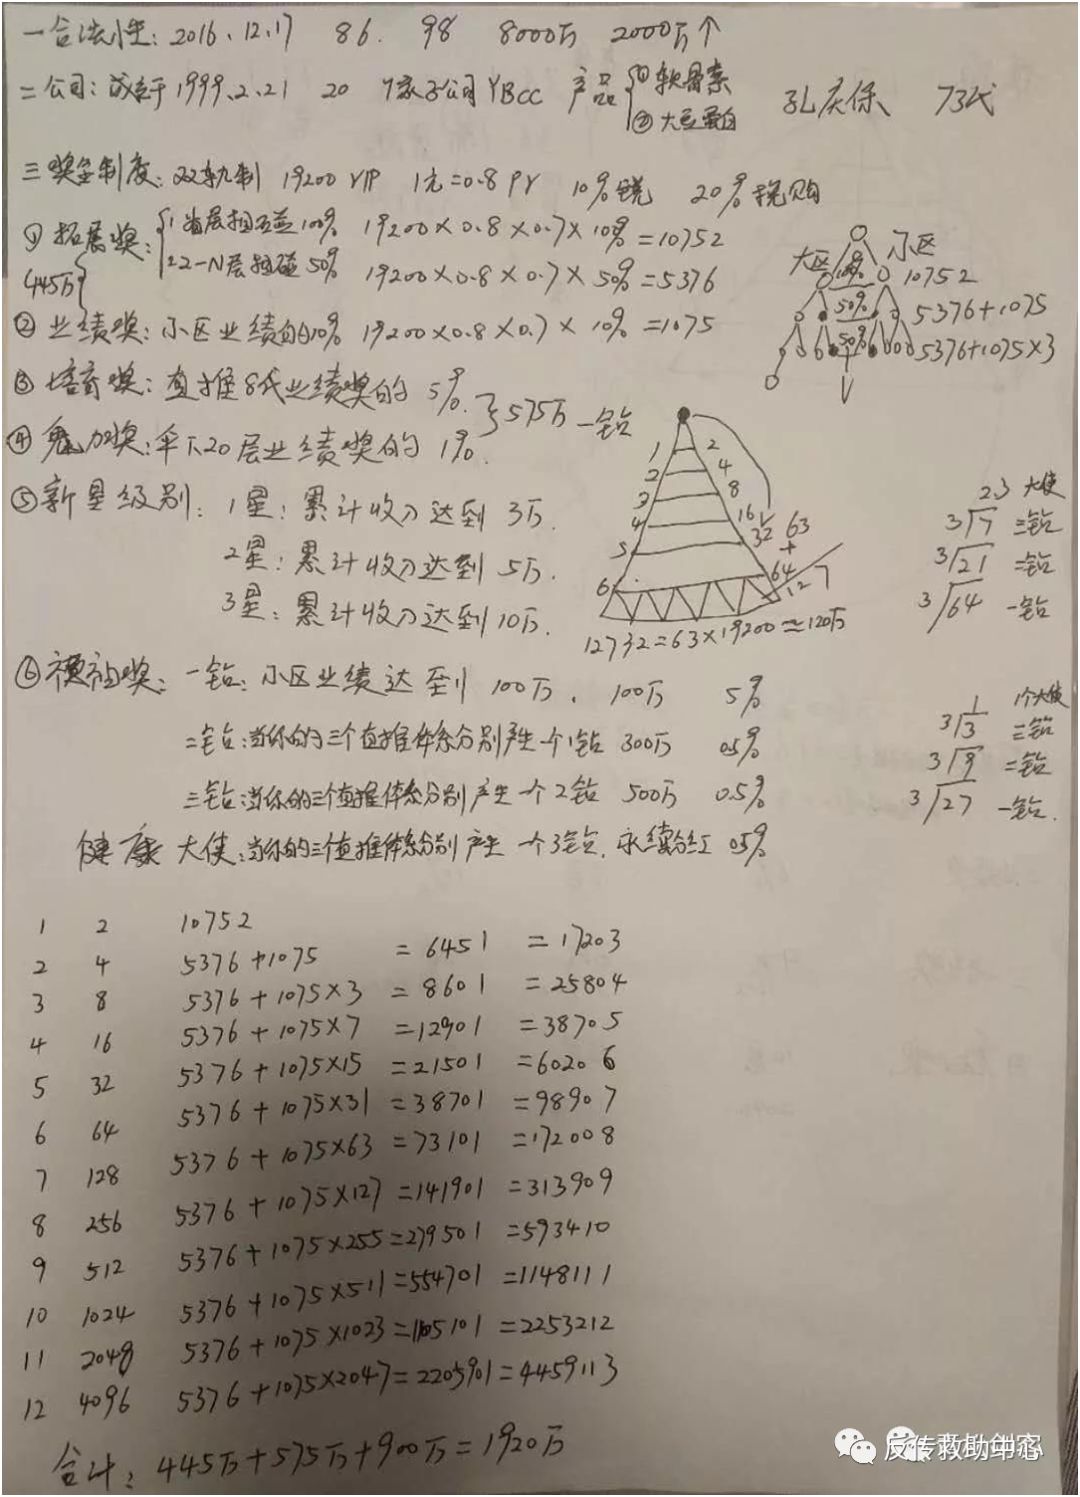 一合法性: 2016、12.17 86. 98 8000万 2000万个
二公司: 成立于1999.2.21 20 7家子公司YBCC 产品 ①软骨素
②大豆蛋白 孔庆保 73代
三奖金制度: 双轨制 19200 VIP 1元=0.8PV 10%税 20%税购
①拓展奖: 1 首层相互碰100% 19200×0.8×0.7×10%=10752
2 2-N层相碰50% 19200×0.8×0.7×50%=5376
445万
②业绩奖: 小区业绩的10% 19200×0.8×0.7×10%=1075
大区 小区
100% 10752
50% 5376+1075
50% 5376+1075×3
③培育奖: 直推8代业绩奖的 5%.
}575万 一钻
④魅力奖: 伞下20层业绩奖的 1%.
⑤新星级别: 1星: 累计收入达到 3万.
2星: 累计收入达到 5万.
3星: 累计收入达到 10万.
1 2
2 4
3 8
4 16
5 32 63
+
6 64
127
12732=63×19200≈120万
23 大使
3/7 三钻
3/21 二钻
3/64 一钻
⑥福祉奖: 一钻: 小区业绩达到 100万. 100万 5%
二钻: 当你的三个直推体系分别产生一个1钻 300万 0.5%
三钻: 当你的三个直推体系分别产生一个2钻 500万 0.5%
健康大使: 当你的三个直推体系分别产生一个3钻. 永续分红 0.5%
1 1个大使
3/3 三钻
3/9 二钻
3/27 一钻.
1 2 10752
2 4 5376+1075 =6451 =17203
3 8 5376+1075×3 =8601 =25804
4 16 5376+1075×7 =12901 =38705
5 32 5376+1075×15 =21501 =60206
6 64 5376+1075×31=38701 =98907
7 128 5376+1075×63=73101 =172008
8 256 5376+1075×127=141901=313909
9 512 5376+1075×255=279501=593410
10 1024 5376+1075×511=554701=1148111
11 2048 5376+1075×1023=1105101=2253212
12 4096 5376+1075×2047=2205901=4459113
合计: 445万+575万+900万=1920万
反传救助中心